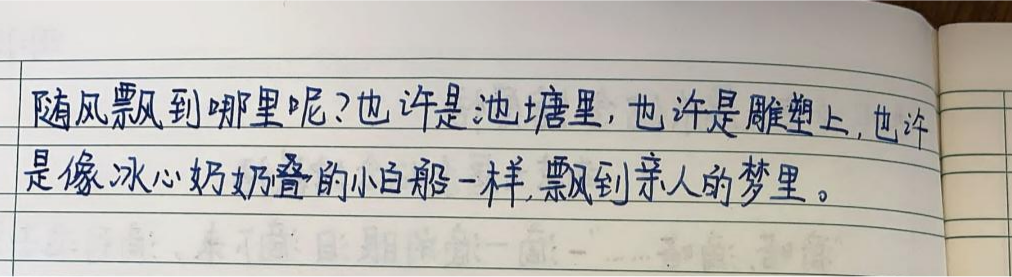 随风飘到哪里呢?也许是池塘里,也许是雕塑上,也许
是像冰心奶奶叠的小白船一样,飘到亲人的梦里。